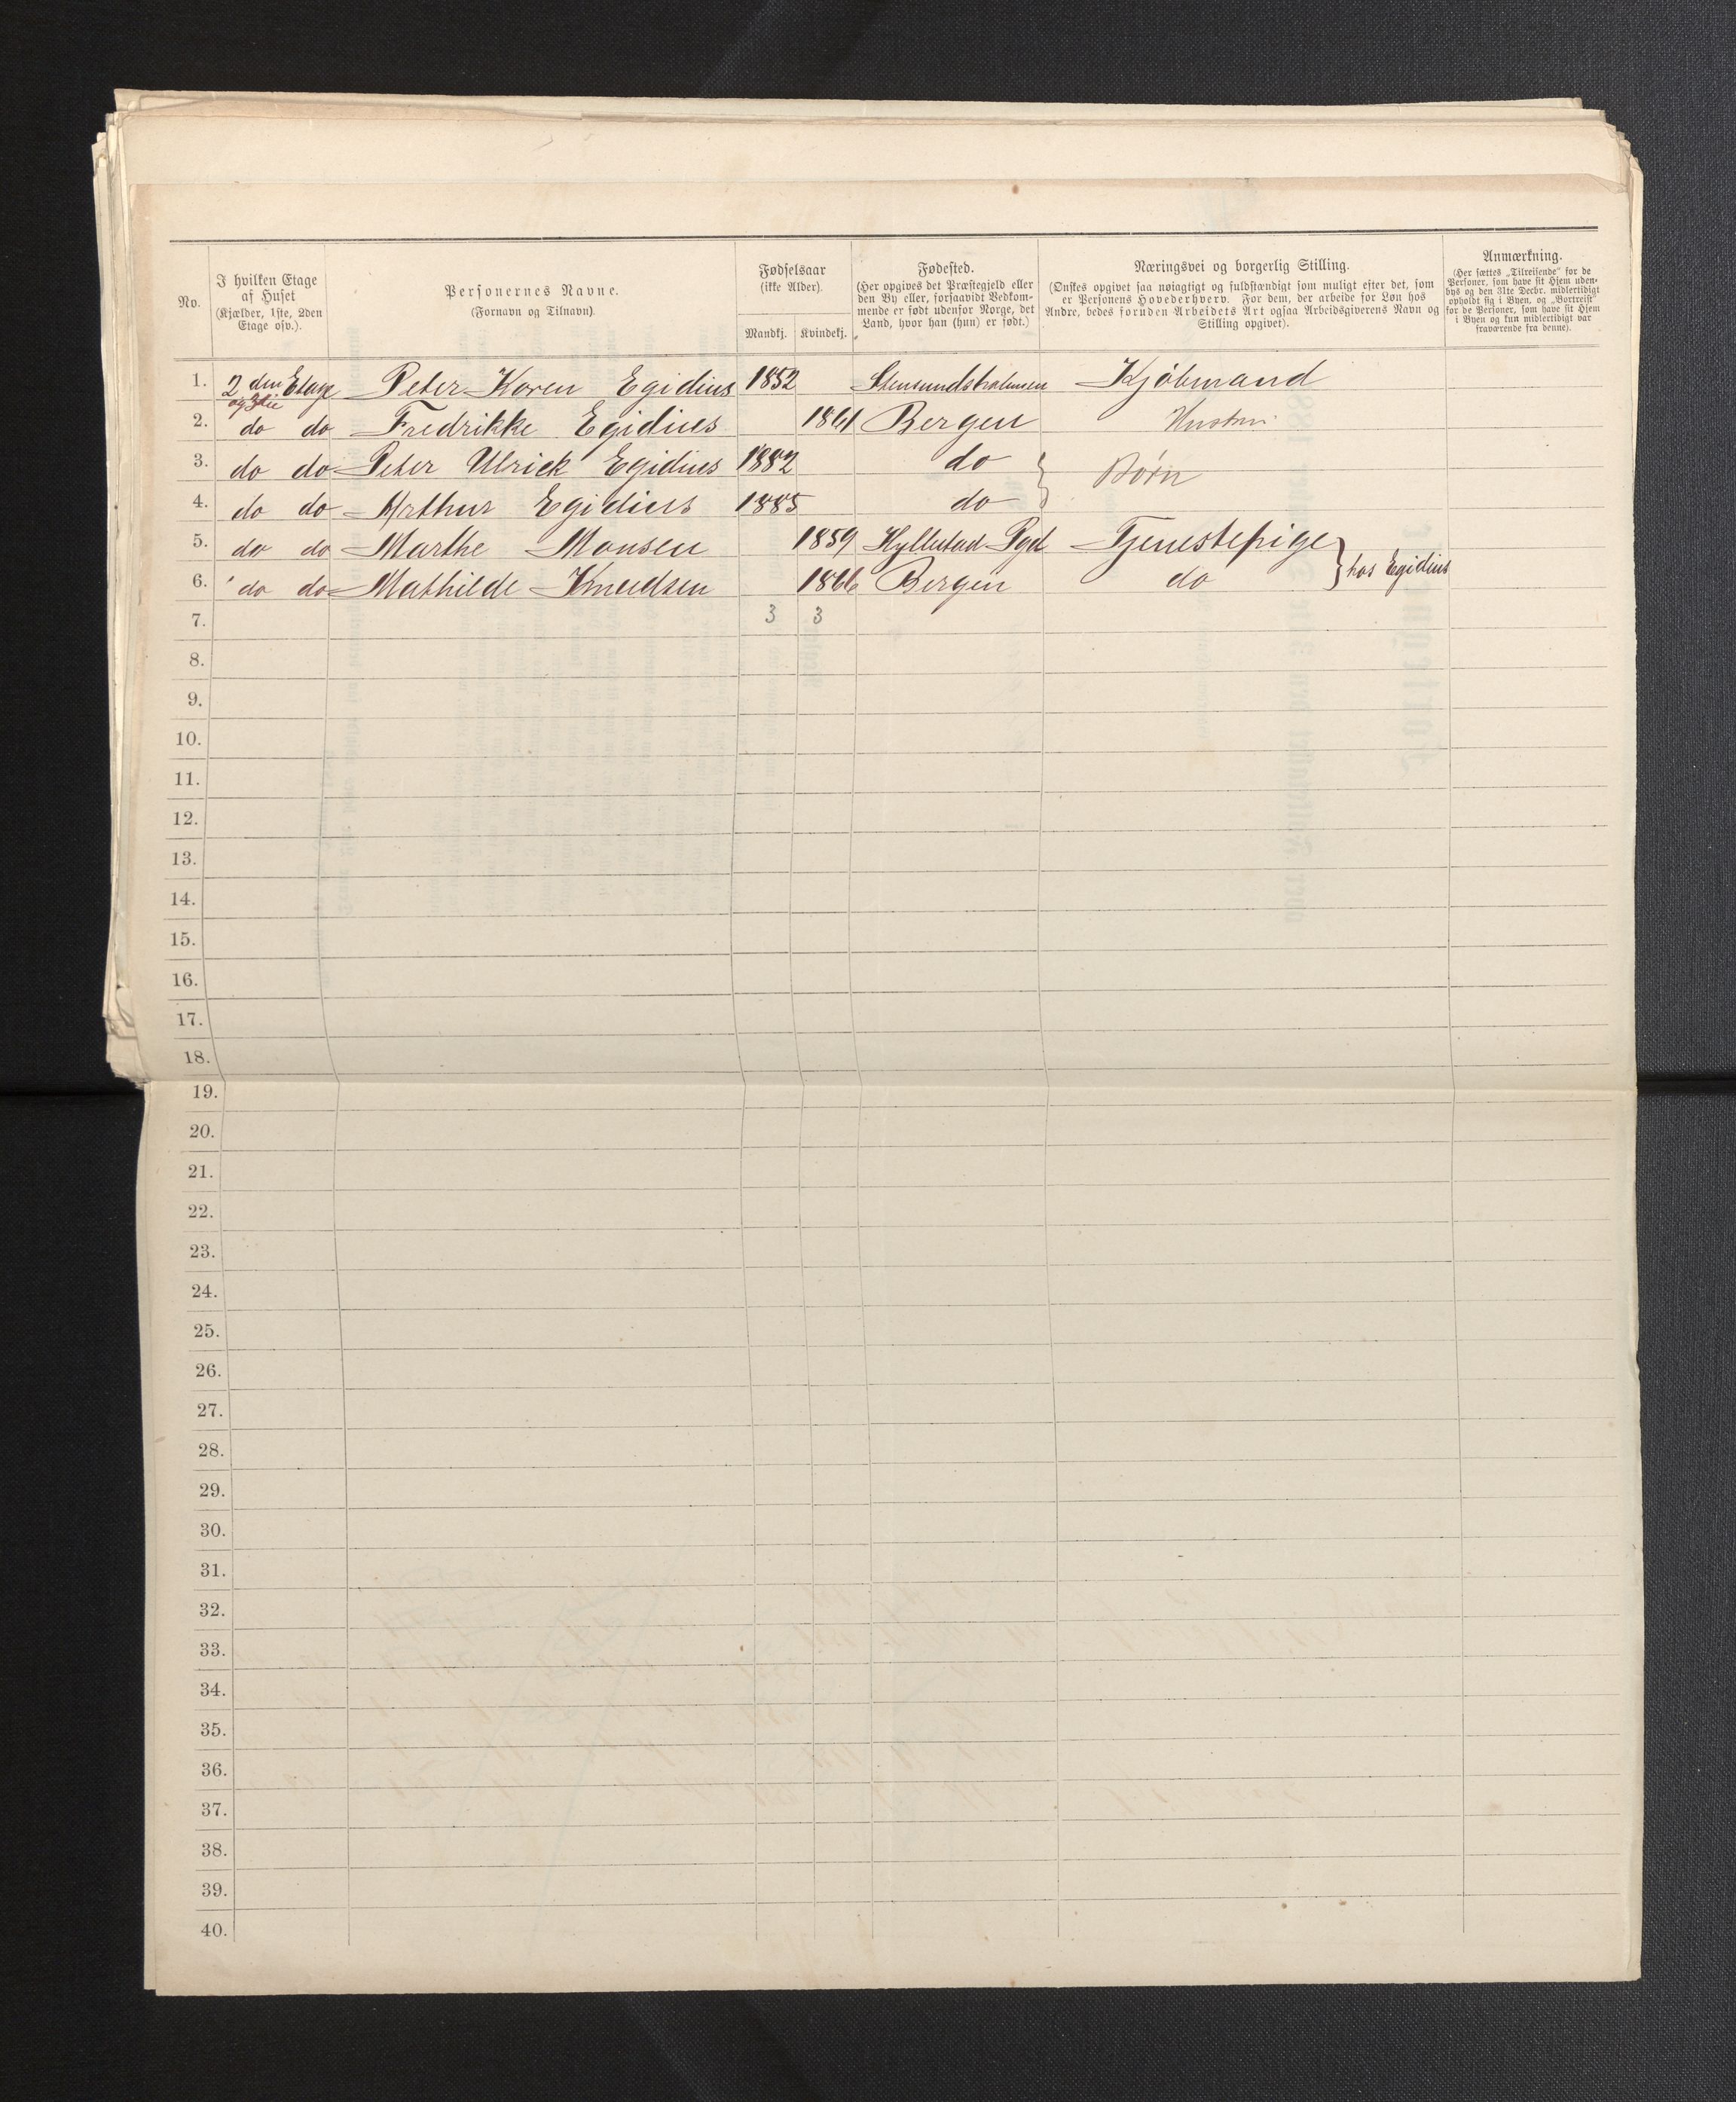 No.
I hvilken Etage
af Huset
(Kjælder, 1ste, 2den
Etage osv.).
Personernes Navne.
(Fornavn og Tilnavn)
Fødselsaar
(ikke Alder).
Mandkj. Kvindekj.
Fødested.
(Her opgives det Præstegjeld eller
den By eller, forsaavidt Vedkom-
mende er født udenfor Norge, det
Land, hvor han (hun) er født.)
Næringsvei og borgerlig Stilling.
(Ønskes opgivet saa nøiagtigt og fuldstændigt som muligt efter det, som
er Personens Hovederhverv. For dem, der arbeide for Løn hos
Andre, bedes foruden Arbeidets Art ogsaa Arbeidsgiverens Navn og
Stilling opgivet).
Anmærkning.
(Her sættes „Tilreisende" for de
Personer, som have sit Hjem uden-
bys og den 31te Decbr. midlertidigt
opholdt sig i Byen, og „Bortreist"
for de Personer, som have sit Hjem
i Byen og kun midlertidigt var
fraværende fra denne).
1. 2den Etage Peter Koren Egidius 1852 Stensundsholmen Kjøbmand
og 3die
2. do do Fredrikke Egidius 1861 Bergen Hustru
3. do do Peter Ulrick Egidius 1882 do } Børn
4. do do Arthur Egidius 1885 do
5. do do Marthe Monsen 1859 Hyllestad Pgd Tjenestepige } hos Egidius
6. do do Mathilde Knudsen 1866 Bergen do
7. 3 3
8.
9.
10.
11.
12.
13.
14.
15.
16.
17.
18.
19.
20.
21.
22.
23.
24.
25.
26.
27.
28.
29.
30.
31.
32.
33.
34.
35.
36.
37.
38.
39.
40.